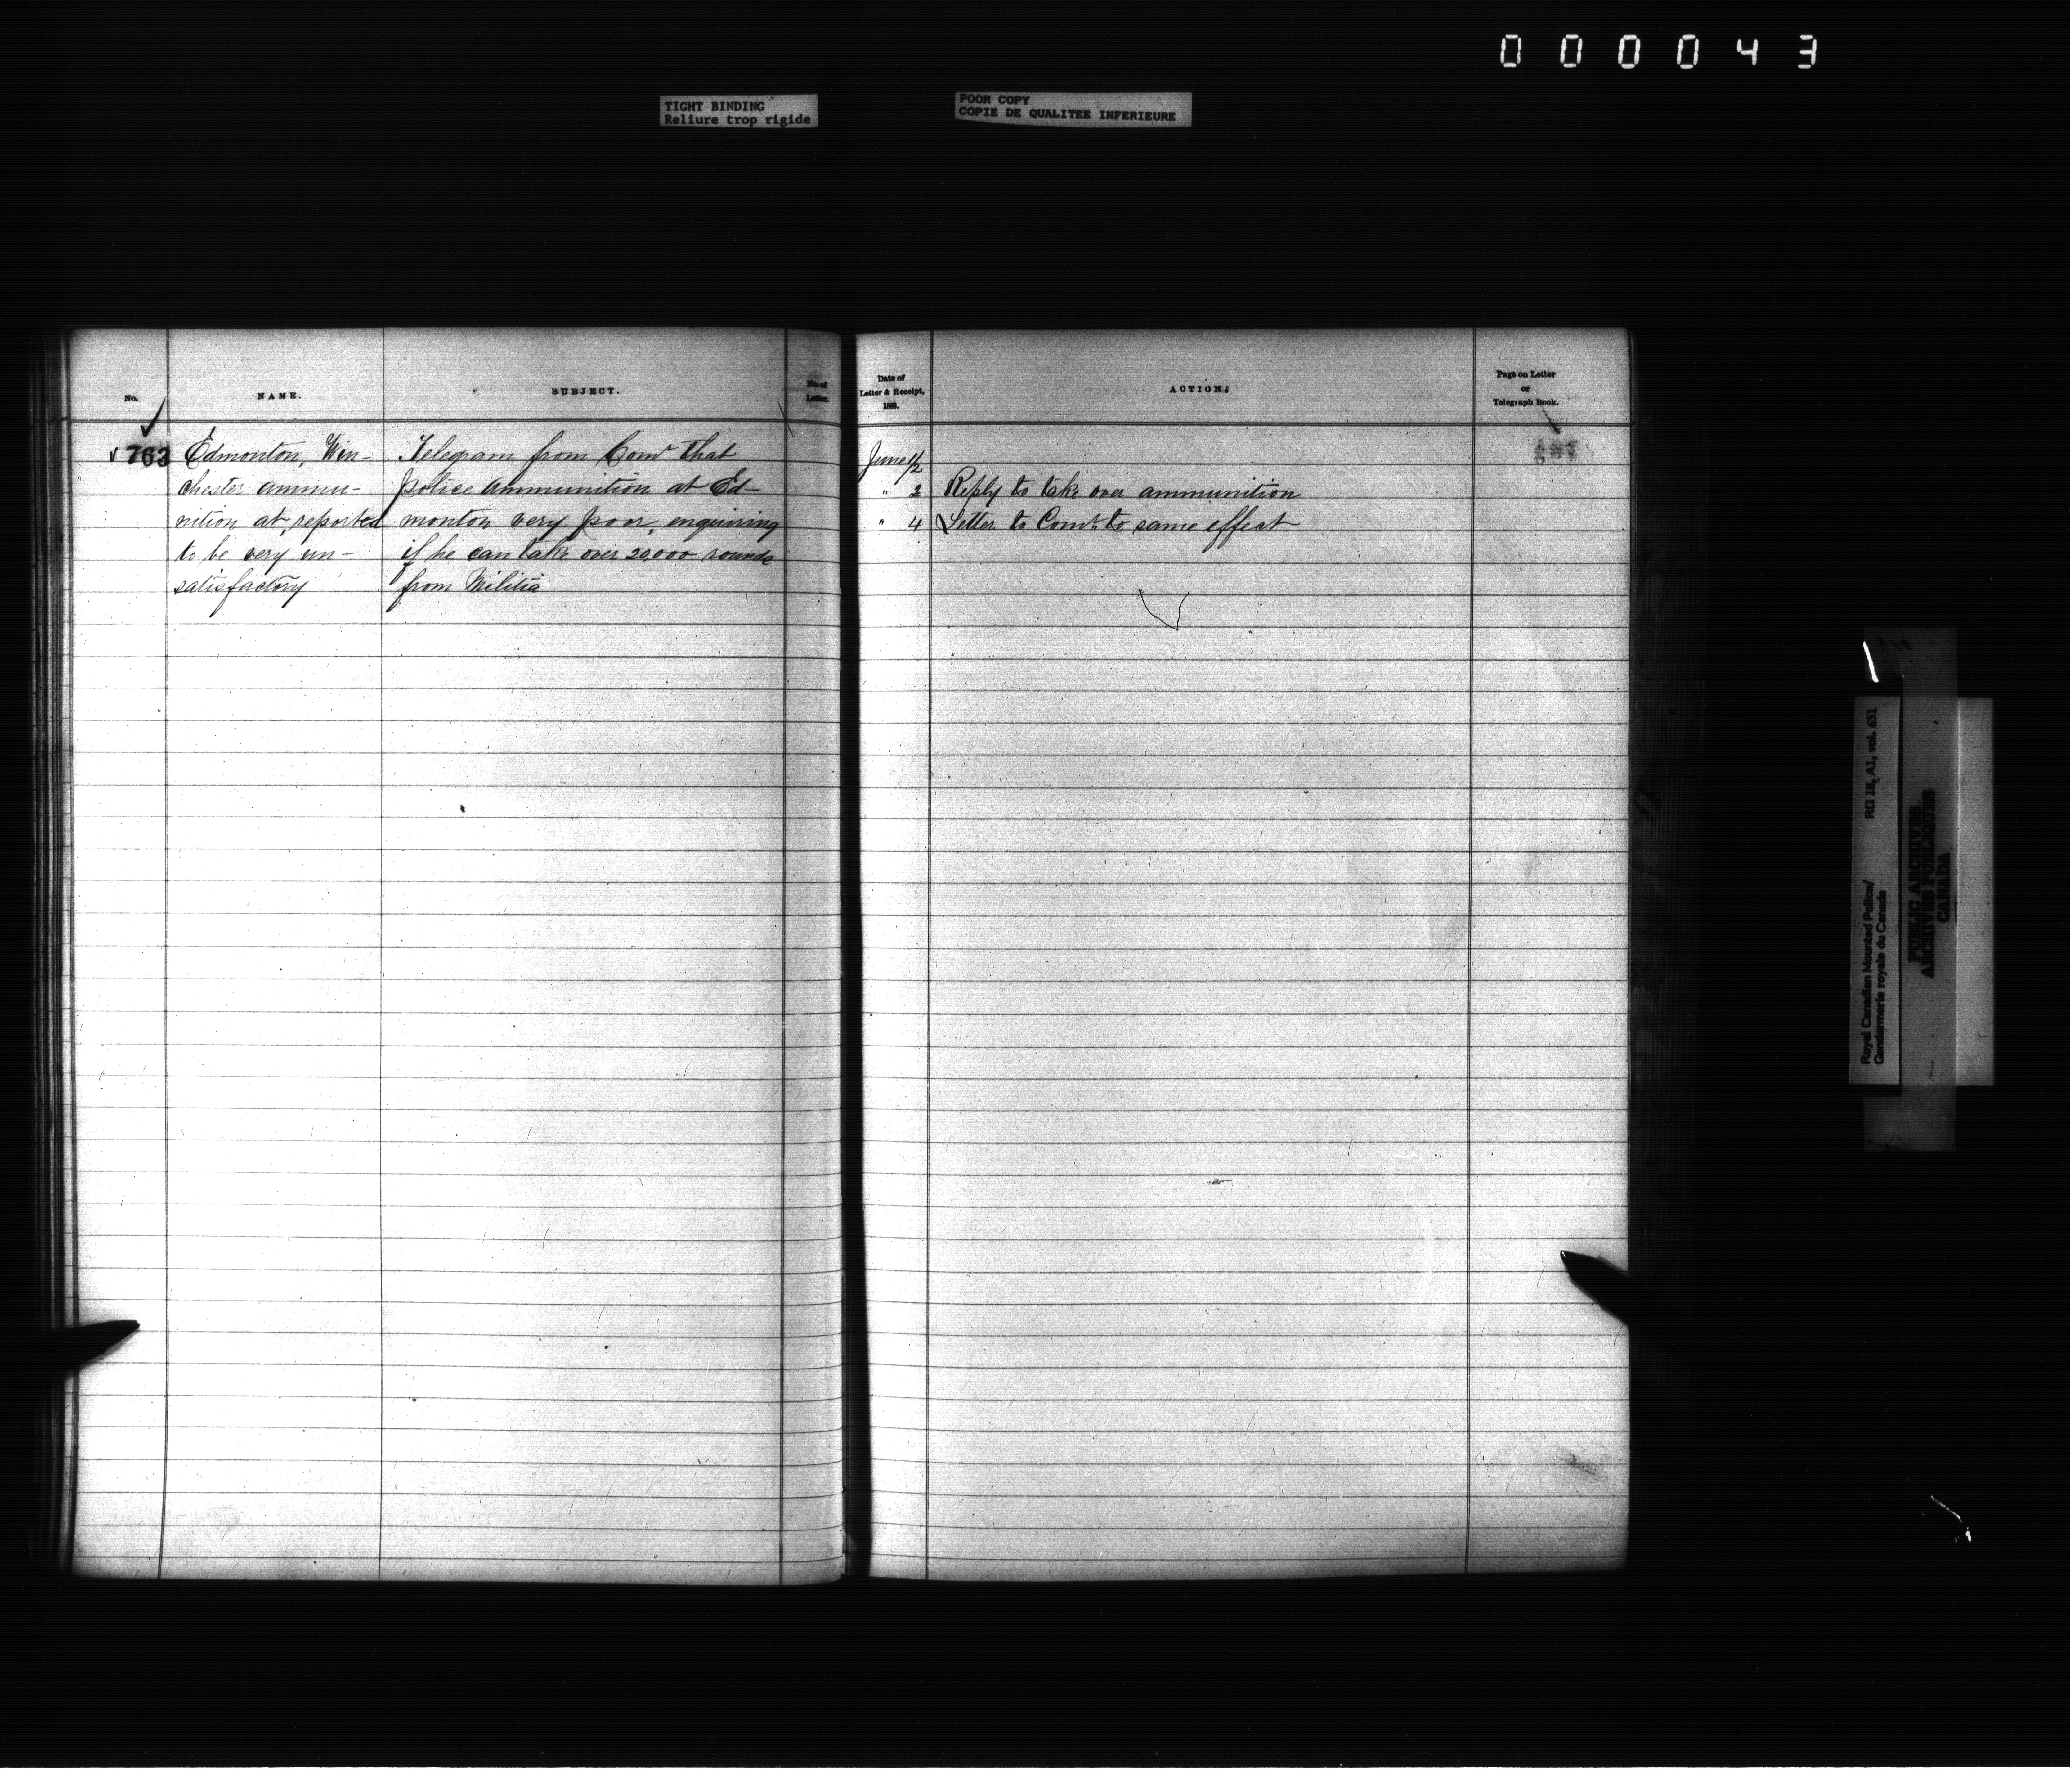 000043
TIGHT BINDING
Reliure trop rigide
POOR COPY
COPIE DE QUALITEE INFERIEURE
No.
NAME.
SUBJECT.
No. of
Letter.
763
Edmonton, Win-
chester ammu-
nition at, reported
to be very un-
satisfactory
Telegram from Comr that
police ammunition at Ed-
monton very poor, enquiring
if he can take over 20,000 rounds
from Militia
Date of
Letter & Receipt,
188.
ACTION.
Page on Letter
or
Telegraph Book.
June 1/2
" 2 Reply to take over ammunition
" 4 Letter to Comr. to same effect
Royal Canadian Mounted Police/
Gendarmerie royale du Canada
RG 18, A1, vol. 651
PUBLIC ARCHIVES
ARCHIVES PUBLIQUES
CANADA